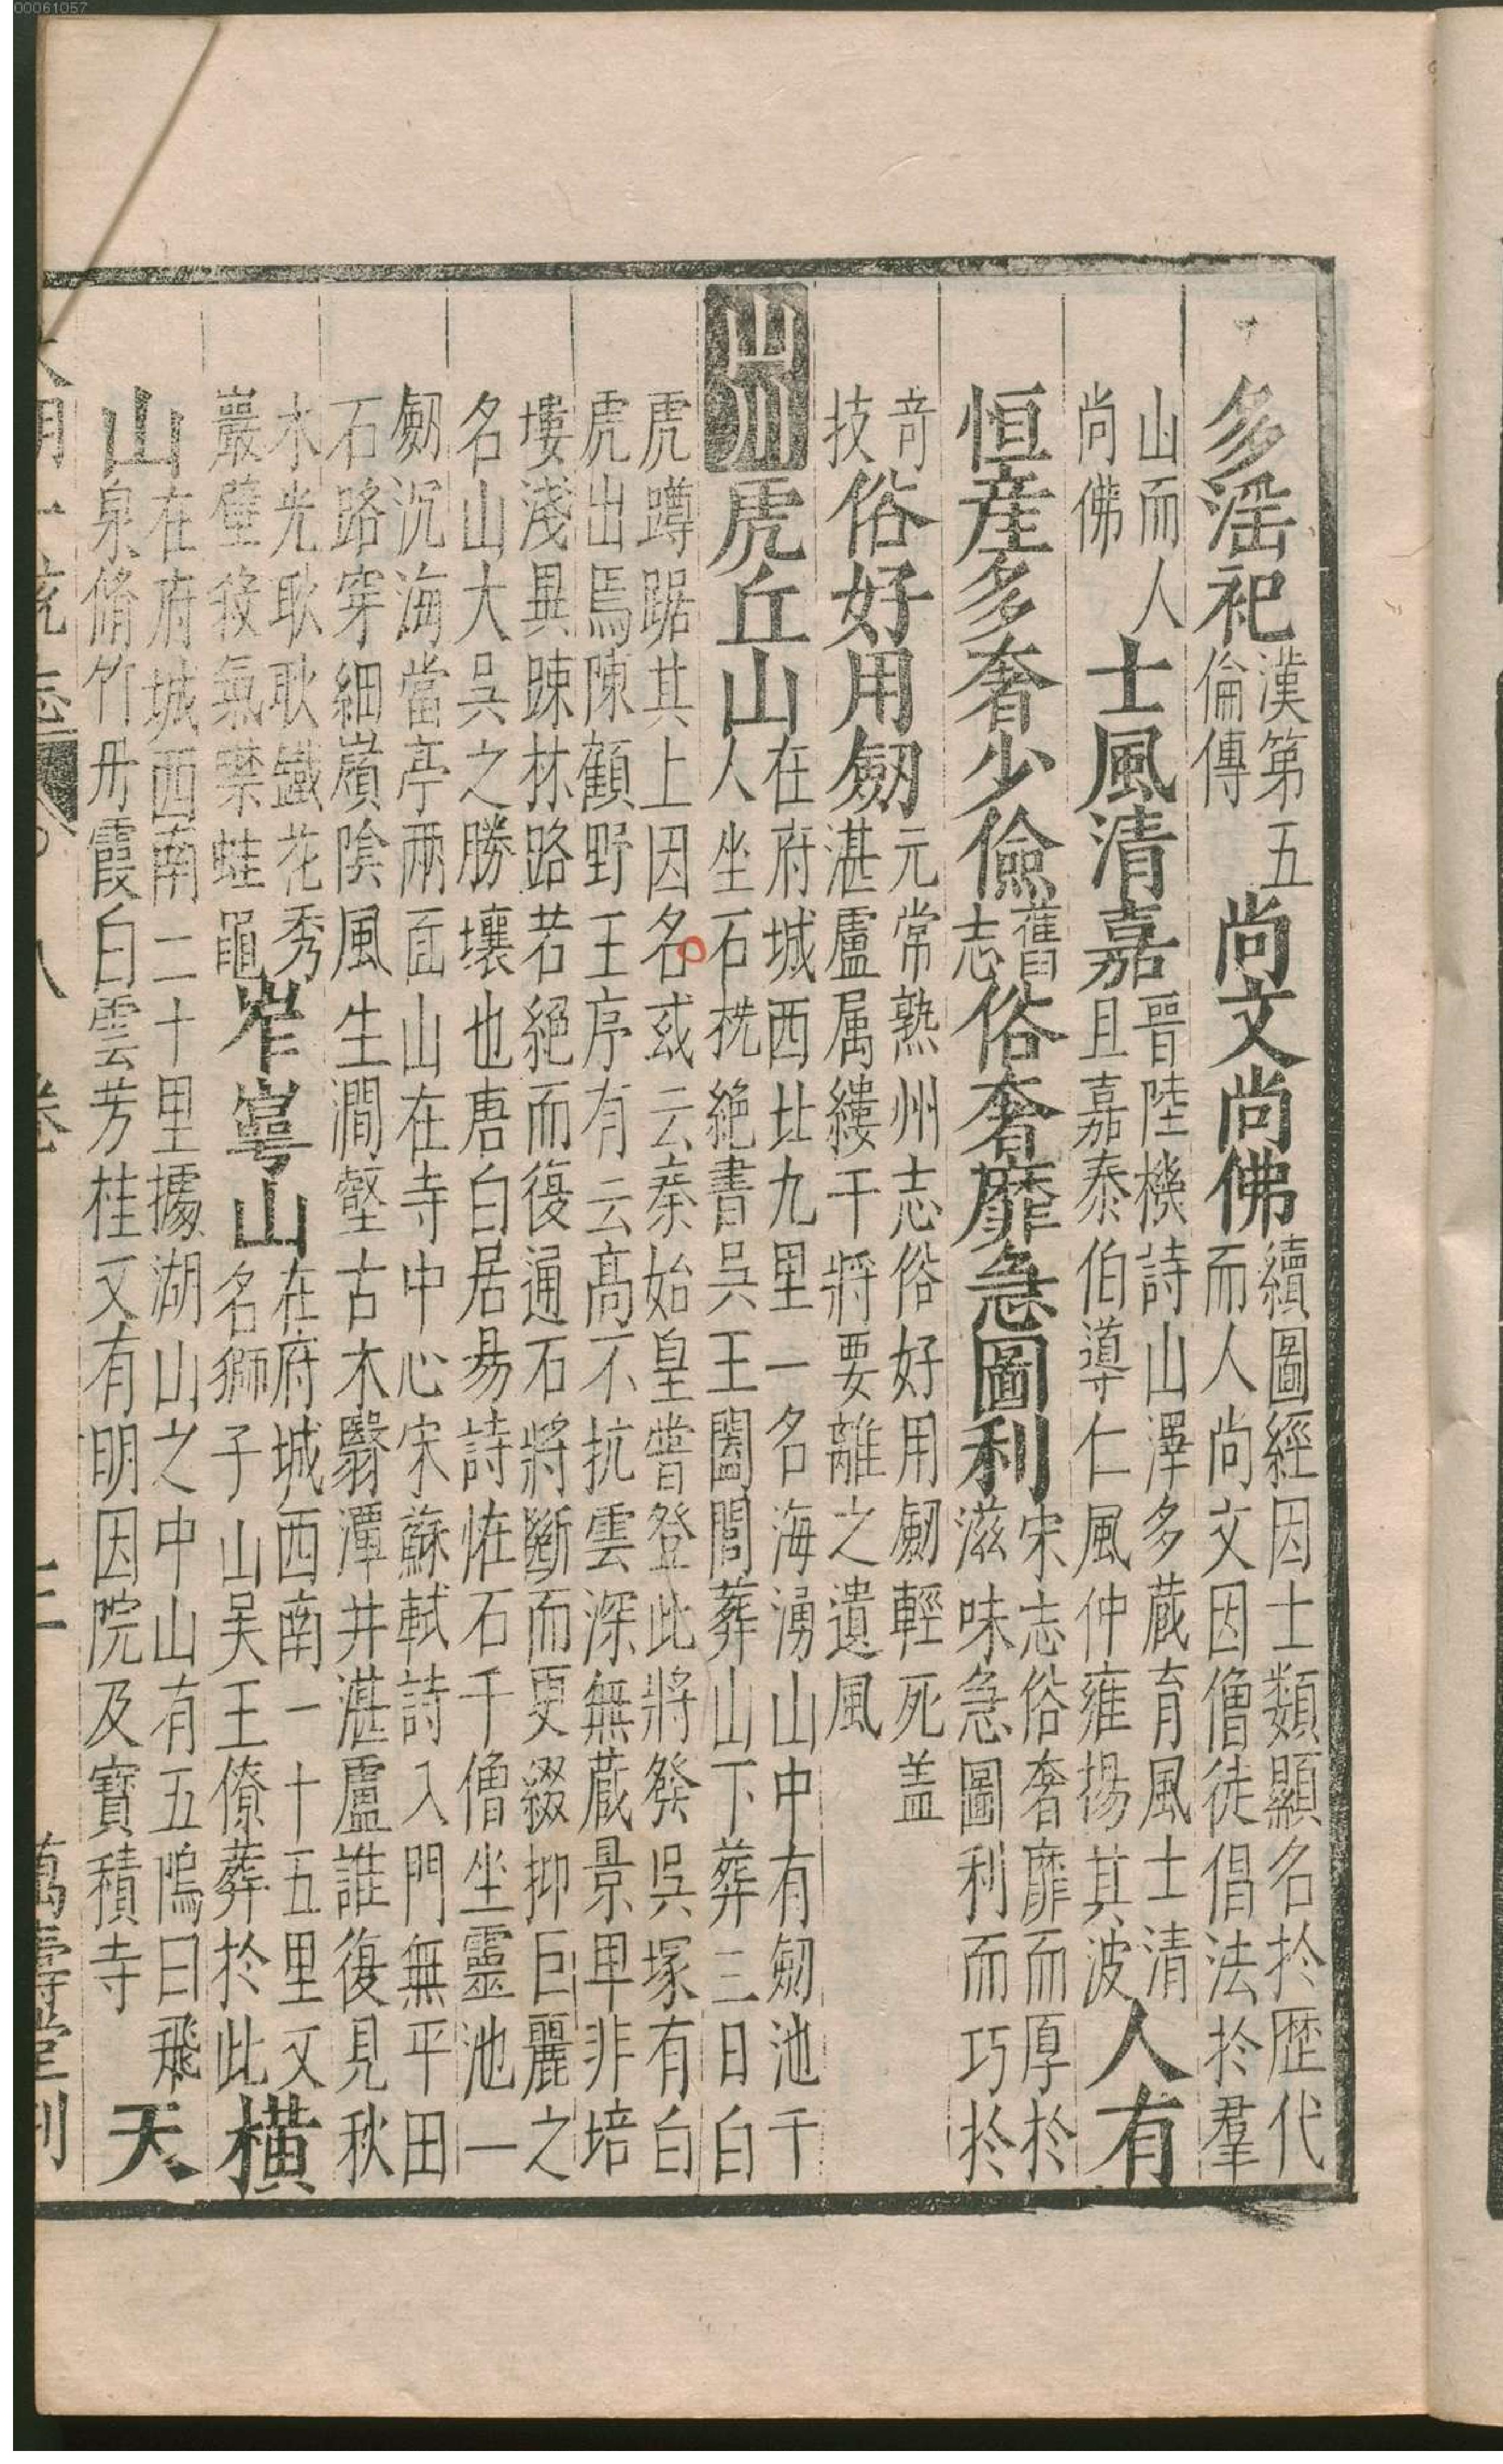 多滛祀漢第五倫傳尚文尚佛續圖經因士類顯名於歷代而人尚文因僧徒倡法於羣
山而人尚佛士風清嘉晉陸機詩山澤多蔵育風士清且嘉泰伯導仁風仲雍揚其波人有
恒産多奢少儉舊志俗奢靡急圖利宋志俗奢靡而厚於滋味急圖利而巧於
竒技俗好用劒元常熟州志俗好用劒輕死盖湛盧属縷干將要離之遺風
山川虎丘山在府城西北九里一名海湧山中有劒池千人坐石桄絶書吳王闔閭葬山下葬三日白
虎蹲踞其上因名或云秦始皇嘗登此將發吳塚有白虎出焉陳顧野王序有云髙不抗雲深無蔵景卑非培
塿淺異疎林路若絕而復通石將斷而更綴抑巨麗之名山大吳之勝壤也唐白居易詩恠石千僧坐靈池一
劒沉海當亭兩面山在寺中心宋蘇軾詩入門無平田石路穿細嶺陰風生澗壑古木翳潭井湛盧誰復見秋
水光耿耿鐵花秀巖壁殺氣噤蛙黽岝㟧山在府城西南一十五里又名獅子山吴王僚葬於此橫
山在府城西南二十里據湖山之中山有五塢曰飛泉脩竹丹霞白雲芳桂又有明因院及寳積寺天
大明一統志 八卷 三 萬壽堂刊
00061057